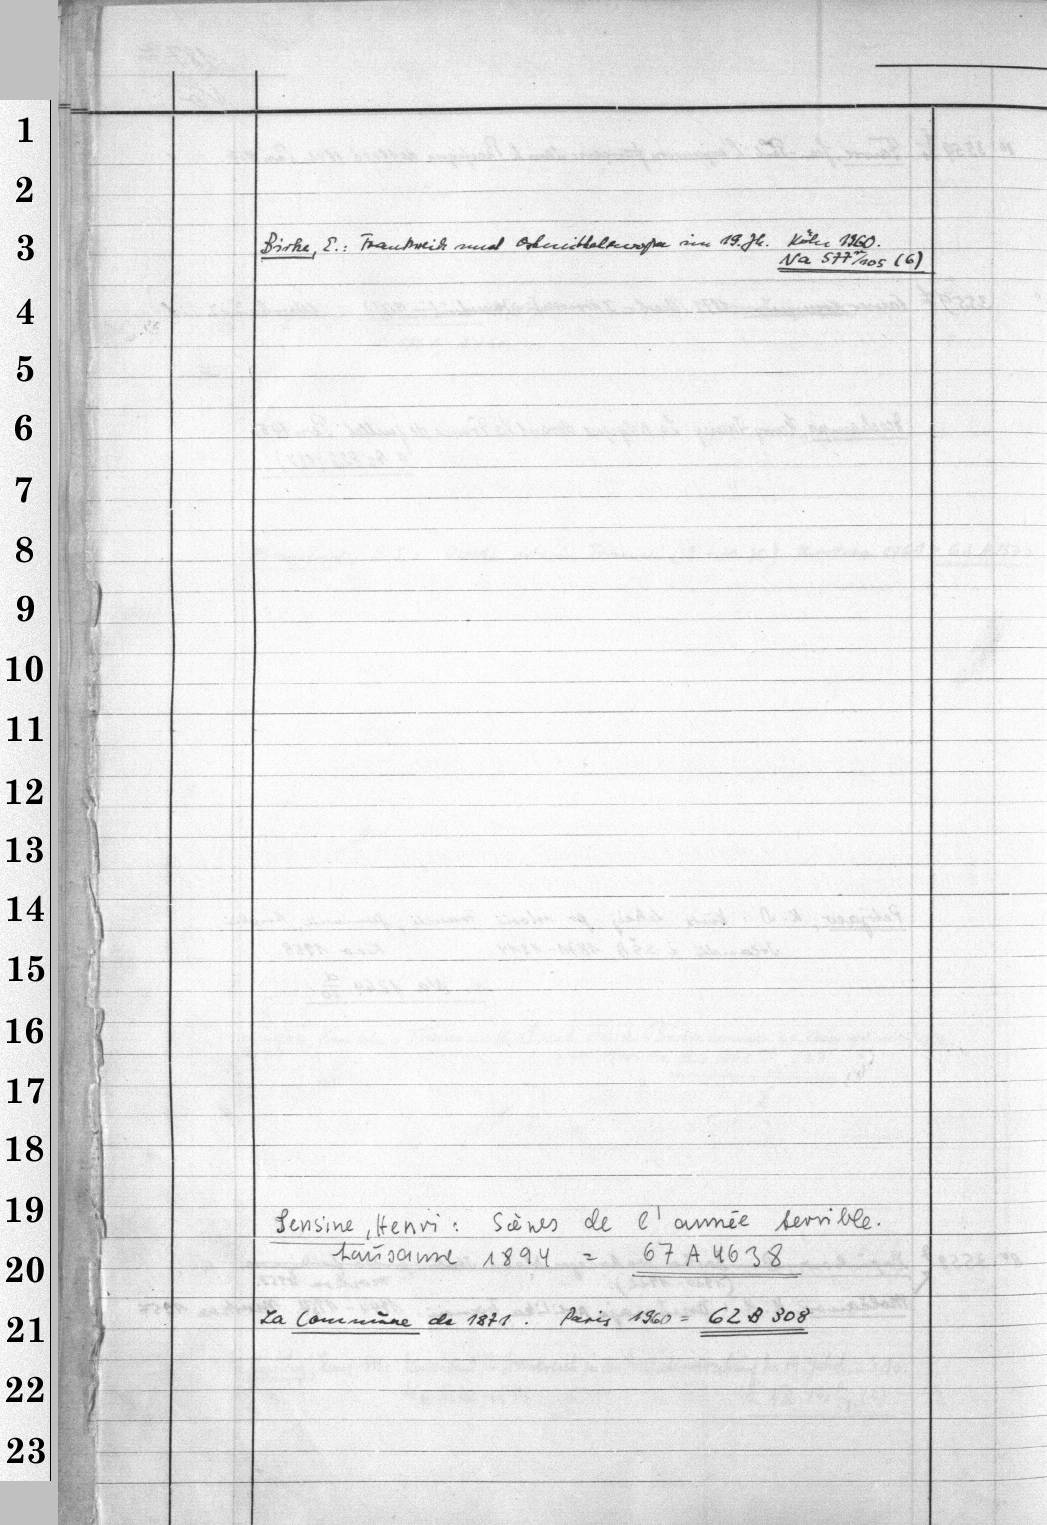 1
2
3
Birke, E.: Frankreich und Ostmitteleuropa im 19. Jh. Köln 1960.
Na 577 /105 (6)
4
5
6
7
8
9
10
11
12
13
14
15
16
17
18
19
Sensine, Henri: Scènes de l'année terrible.
20
Lausanne 1894 = 67 A 4638
21
La Commune de 1871. Paris 1960 = 62 B 308
22
23